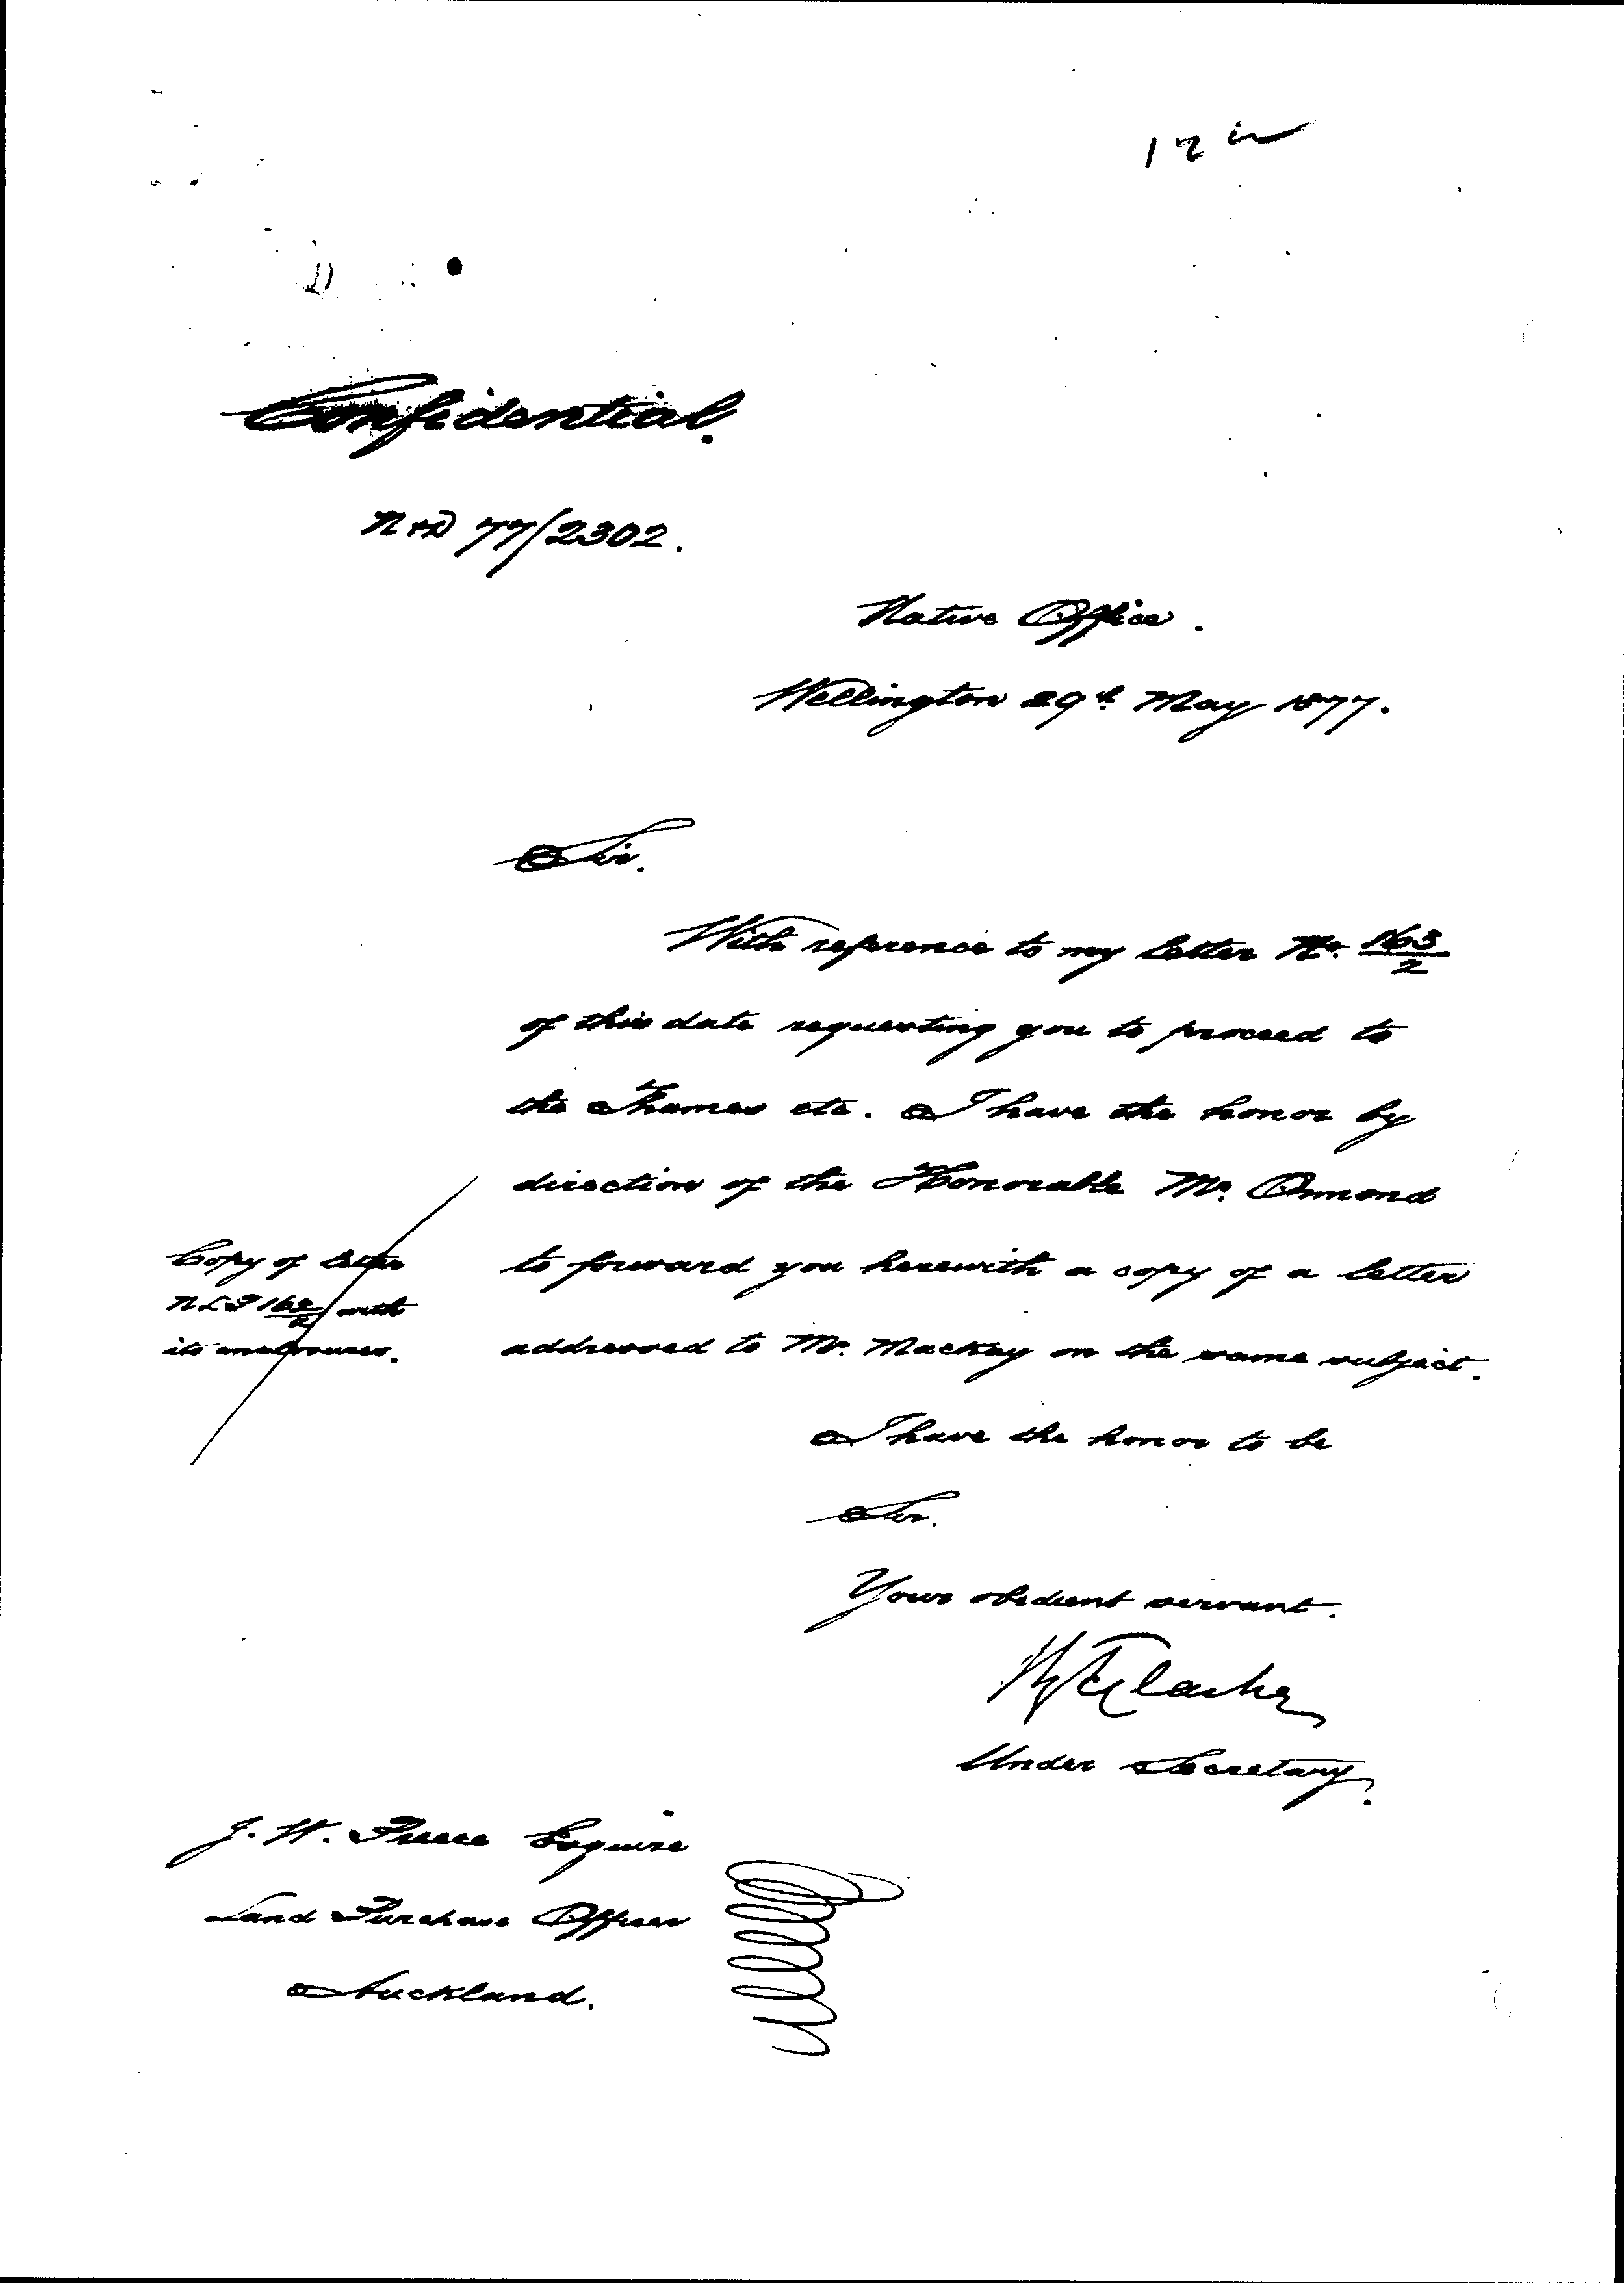 Confidential.
N & D 77/2302.
Native Office.
Wellington 29th May 1877.
Sir.
With reference to my letter No. 163/2
of this date requesting you to proceed to
the Thames etc. I have the honor by
direction of the Honorable Mr. Ormond
Copy of letter
N L P 162/2 with
its enclosures.
to forward you herewith a copy of a letter
addressed to Mr. Mackay on the same subject.
I have the honor to be
Sir.
Your obedient servant.
Clarke
Under Secretary.
J. W. Preece Esquire
Land Purchase Officer
Auckland.